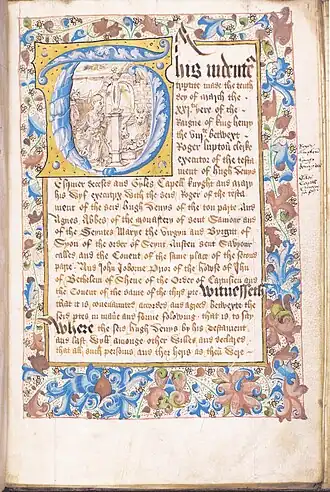 This indent
tripture made the tenth
dey of march the
XXI yere of the
Raigne of king henry
the viij betwext
Roger lupton clerke
executor of the testa
ment of hugh Denys
Esquier decesed and Gyles Capell knyght and mary
his wyf executrix with the seid Roger of the testa
ment of the seid hugh Denys of the ton partie And
Agnes Abbes of the monastery of sent Saviour and
of the Seyntes Marye the virgyn and Birgitt of
Syon of the order of Seynt Austen sent Saviour
called and the Covent of the same place of the second
partie And John Joborne Prior of the house of Jhu
of Bethleem of Shene of the Order of
and the Covent of the same of the third ptie Witnesseth
that it is covenanted accorded and agreed betwext the
seid pties in maner and forme folowing that is to say
Where the seid hugh Denys by his Testament
and last Wyll amonge other Willes and declared
that all such persones and ther heirs as then Were